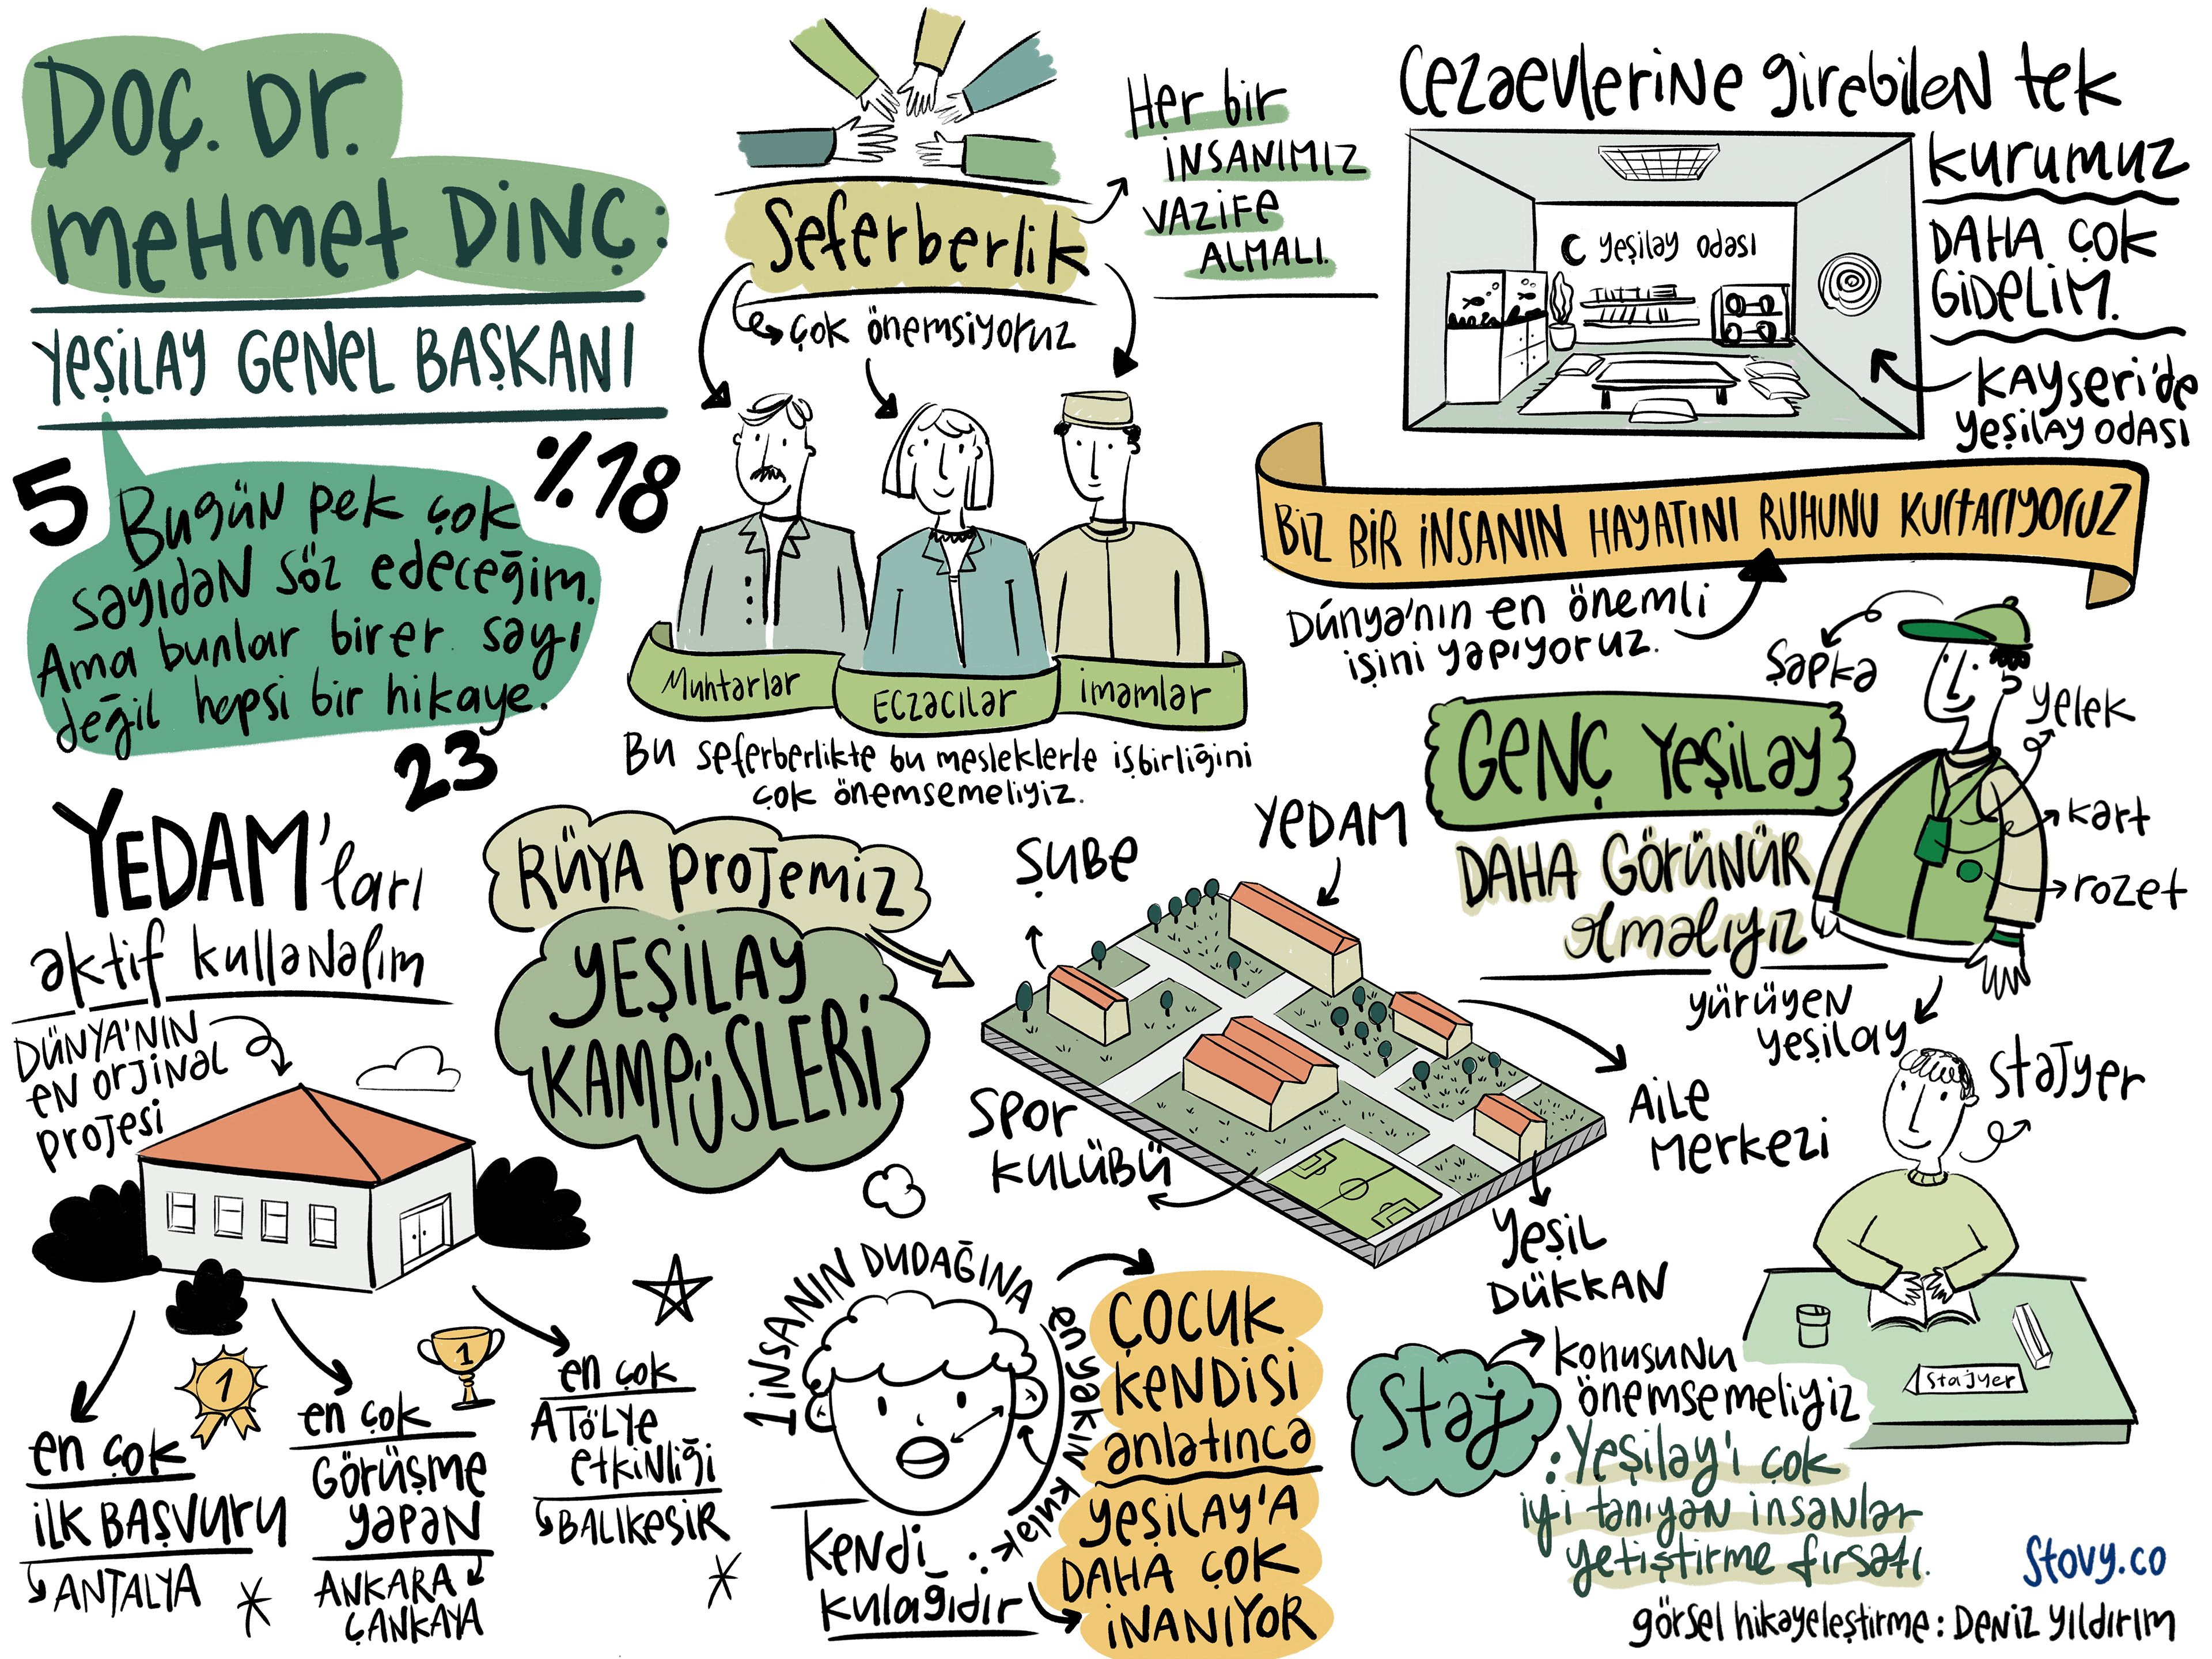 Doç. Dr.
Mehmet Dinç:
Yeşilay Genel Başkanı
5
%18
Bugün pek çok
sayıdan söz edeceğim.
Ama bunlar birer sayı
değil hepsi bir hikaye.
23
Seferberlik
Her bir
insanımız
vazife
almalı.
çok önemsiyoruz
Muhtarlar
Eczacılar
imamlar
Bu seferberlikte bu mesleklerle işbirliğini
çok önemsemeliyiz.
Cezaevlerine girebilen tek
kurumuz
Daha çok
gidelim.
C yeşilay odası
Kayseri'de
yeşilay odası
Biz bir insanın hayatını ruhunu kurtarıyoruz
Dünya'nın en önemli
işini yapıyoruz.
Genç Yeşilay
Daha görünür
olmalıyız
şapka
yelek
kart
rozet
yürüyen
yeşilay
YEDAM'ları
aktif kullanalım
Dünya'nın
en orjinal
projesi
1
1
en çok
ilk başvuru
Antalya
en çok
Görüşme
yapan
Ankara
Çankaya
en çok
Atölye
etkinliği
Balıkesir
Rüya projemiz
Yeşilay
Kampüsleri
Şube
YEDAM
Spor
Kulübü
Aile
Merkezi
Yeşil
Dükkan
1 insanın dudağına
en yakın kulak:
Kendi
kulağıdır
Çocuk
kendisi
anlatınca
Yeşilay'a
daha çok
inanıyor
stajyer
Stajyer
Staj
konusunu
önemsemeliyiz
: Yeşilay'ı çok
iyi tanıyan insanlar
yetiştirme fırsatı.
Stovy.co
görsel hikayeleştirme: Deniz Yıldırım